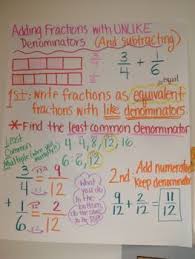 Adding Fractions with UNLIKE
Denominators (And subtracting)
3/4 + 1/6
equal
1st: Write fractions as equivalent
fractions with like denominators
*Find the least common denominator
Least
Common
Multiple
4 4, 8, 12, 16
6 6, 12
3/4 = 9/12
+ 1/6 = 2/12
What you do to the
bottom,
do the same
to the top!
2nd: Add numerators
Keep denominator
9/12 + 2/12 = 11/12